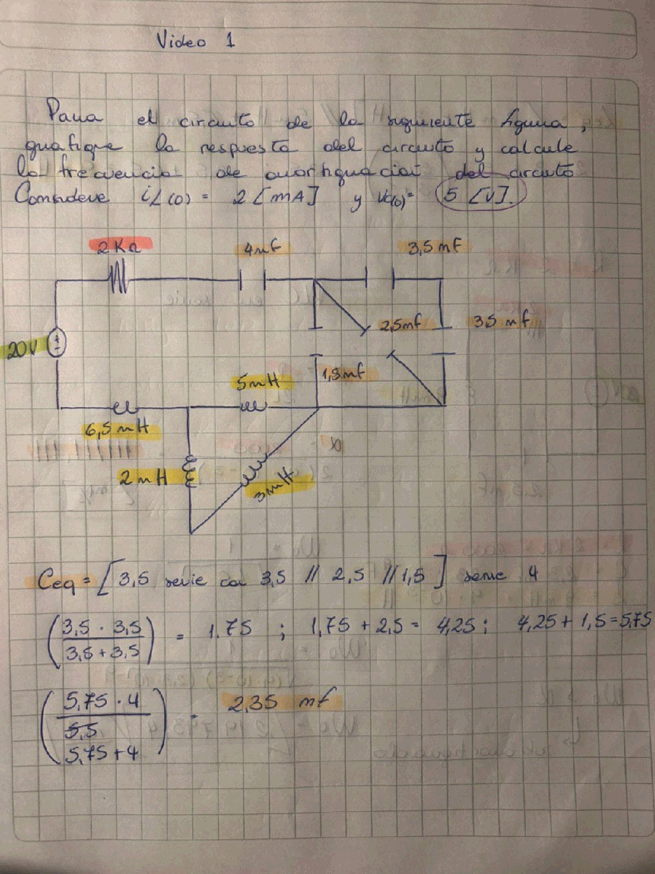 Video 1
Para el circuito de la siguiente figura,
grafique la respuesta del circuito y calcule
la frecuencia de amortiguación del circuito
Considere iL(0) = 2 [mA] y Vc(0) = 5 [V].
2 KΩ 4mf 3,5 mf
20V 2,5mf 3,5 mf
5mH 1,5mf
6,5mH
2mH 3mH
Ceq = [ 3,5 serie con 3,5 // 2,5 // 1,5 ] serie 4
( 3,5 · 3,5 / 3,5 + 3,5 ) = 1.75 ; 1,75 + 2,5 = 4,25 ; 4,25 + 1,5 = 5,75
( 5,75 · 4 / 5,75 + 4 ) = 2,35 mf